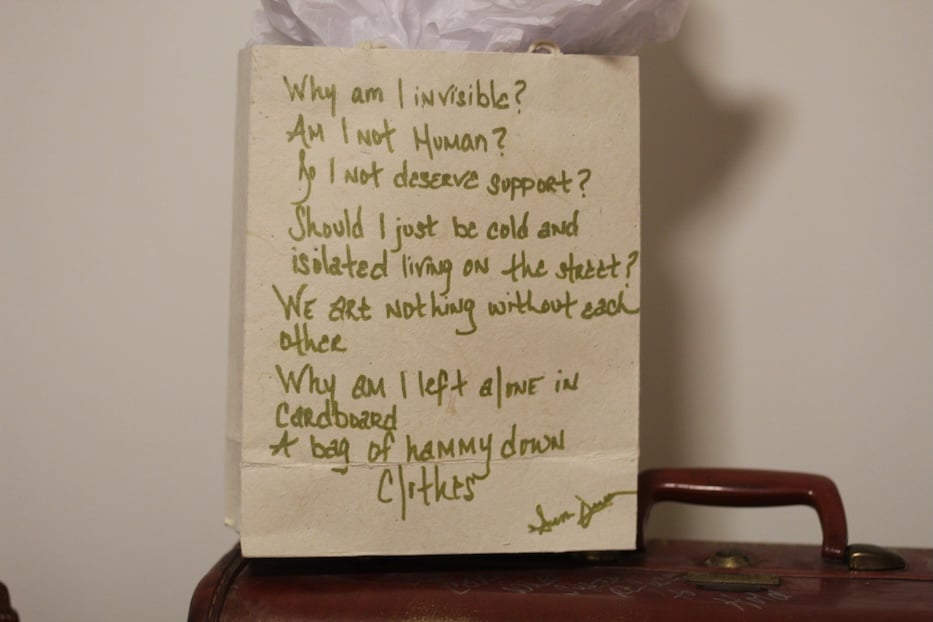 Why am I invisible?
Am I not Human?
Do I not deserve support?
Should I just be cold and
isolated living on the street?
We are nothing without each
other
Why am I left alone in
cardboard
A bag of hammy down
Clothes